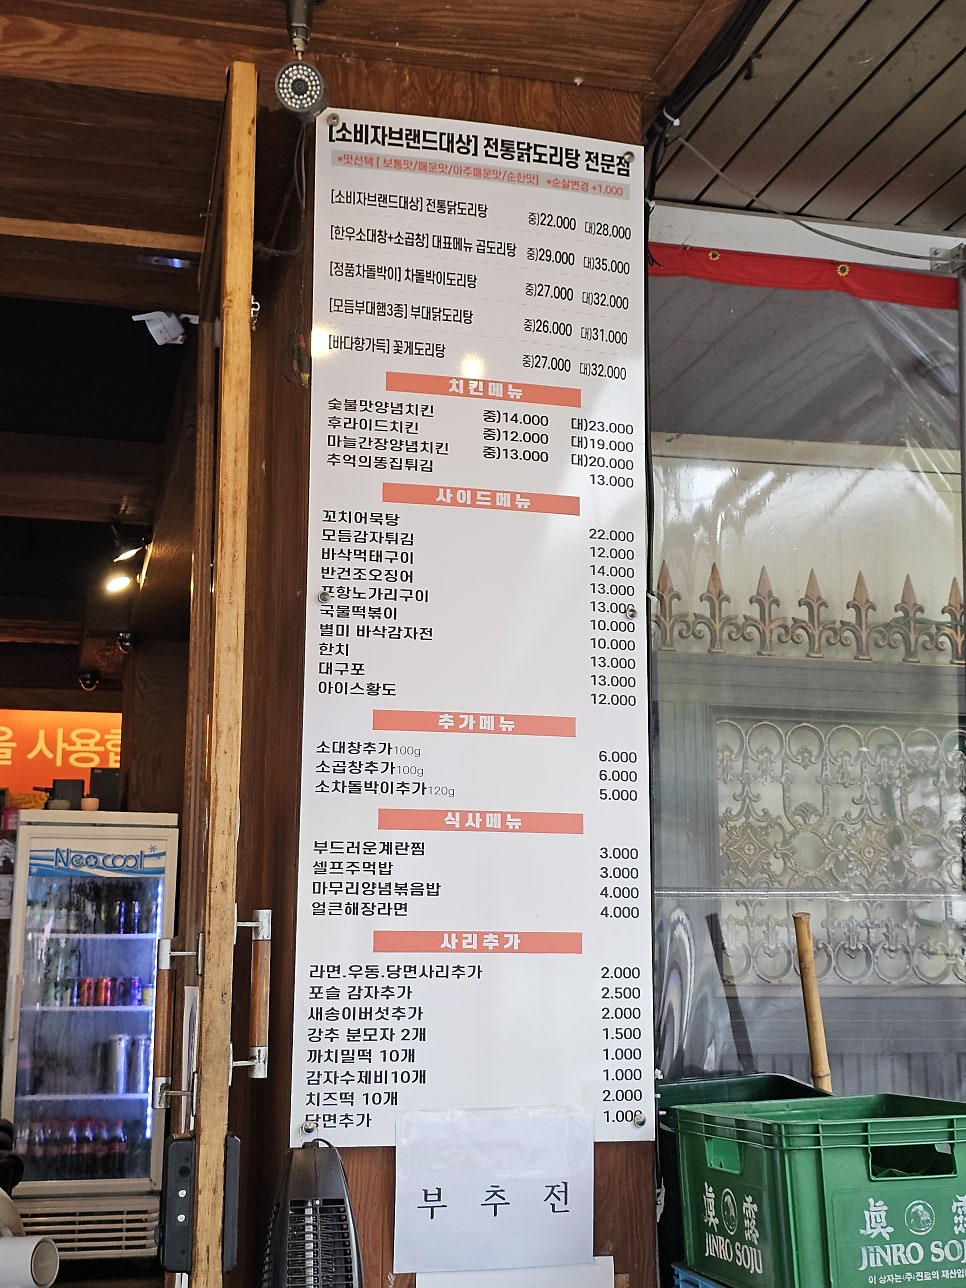 [소비자브랜드대상] 전통닭도리탕 전문점
*맛선택 [ 보통맛/매운맛/아주매운맛/순한맛] *순살변경 +1.000
[소비자브랜드대상] 전통닭도리탕 중)22.000 대)28.000
[한우소대창+소곱창] 대표메뉴 곱도리탕 중)29.000 대)35.000
[정품차돌박이] 차돌박이도리탕 중)27.000 대)32.000
[모듬부대햄3종] 부대닭도리탕 중)26.000 대)31.000
[바다향가득] 꽃게도리탕 중)27.000 대)32.000
치킨메뉴
숯불맛양념치킨 중)14.000 대)23.000
후라이드치킨 중)12.000 대)19.000
마늘간장양념치킨 중)13.000 대)20.000
추억의똥집튀김 13.000
사이드메뉴
꼬치어묵탕 22.000
모듬감자튀김 12.000
바삭먹태구이 14.000
반건조오징어 13.000
포항노가리구이 13.000
국물떡볶이 10.000
별미 바삭감자전 10.000
한치 13.000
대구포 13.000
아이스황도 12.000
추가메뉴
소대창추가100g 6.000
소곱창추가100g 6.000
소차돌박이추가120g 5.000
식사메뉴
부드러운계란찜 3.000
셀프주먹밥 3.000
마무리양념볶음밥 4.000
얼큰해장라면 4.000
사리추가
라면.우동.당면사리추가 2.000
포슬 감자추가 2.500
새송이버섯추가 2.000
강추 분모자 2개 1.500
까치밀떡 10개 1.000
감자수제비10개 1.000
치즈떡 10개 2.000
당면추가 1.000
부 추 전
을 사용합
Neo cool
眞 露
JINRO SOJU
眞 露
JINRO SOJU